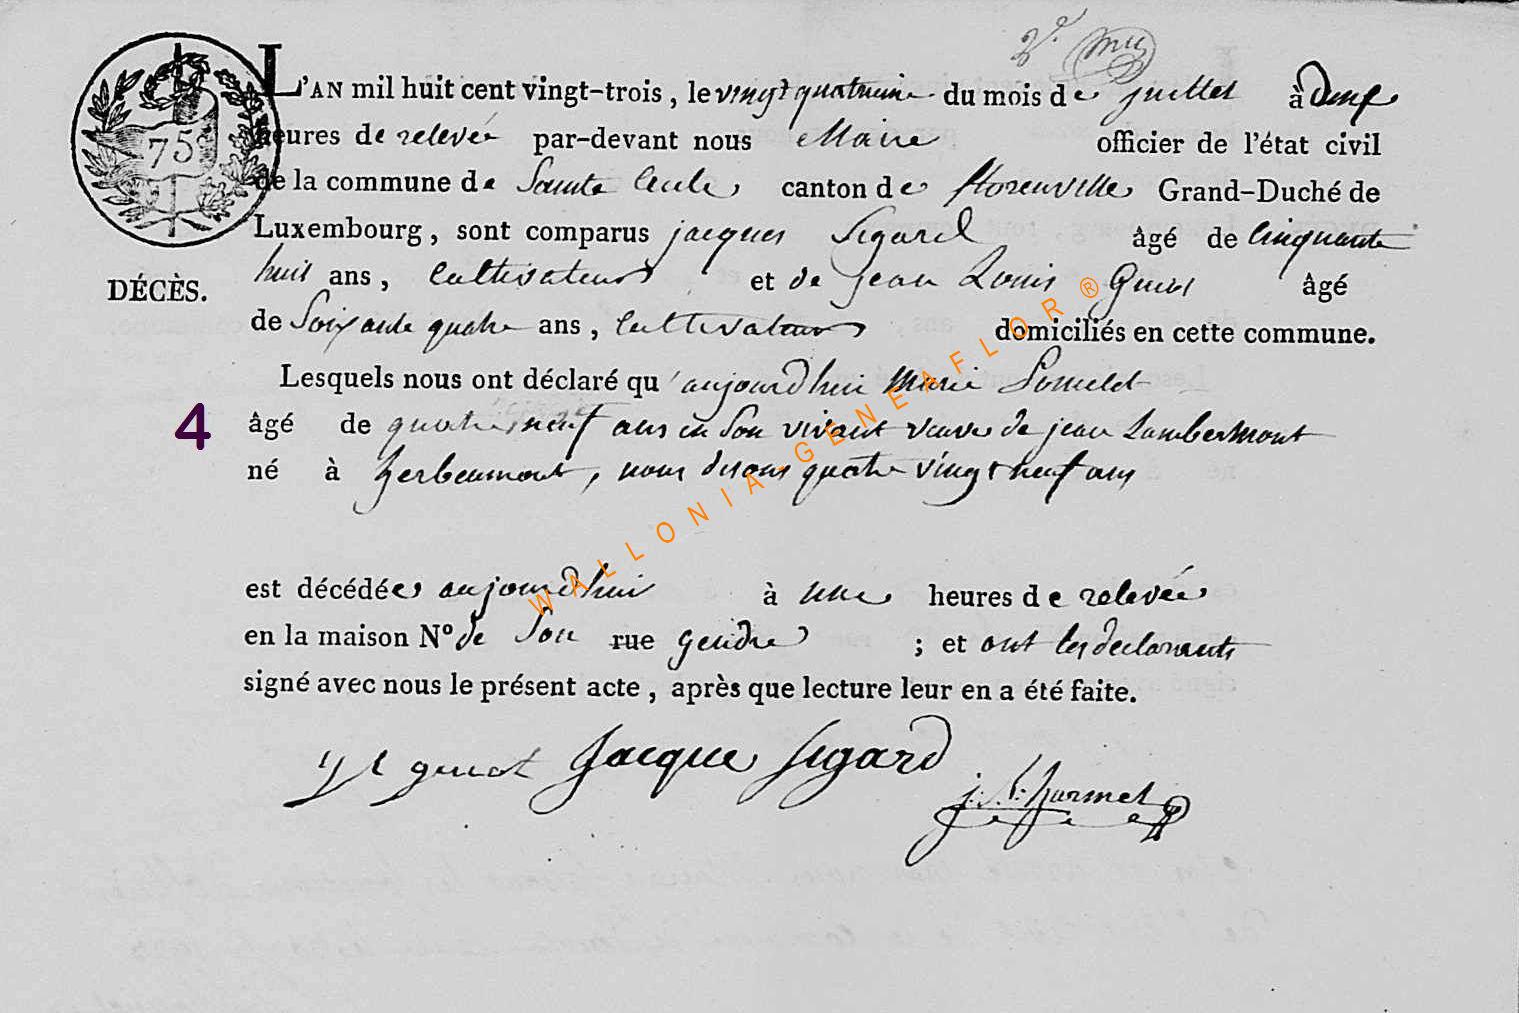 75
L'AN mil huit cent vingt-trois, le vingt quatrieme du mois de juillet à deux
heures de relevée par-devant nous Maire officier de l'état civil
de la commune de Sainte Cecile canton de florenville Grand-Duché de
Luxembourg, sont comparus jacques Sigard âgé de Cinquante
huit ans, Cultivateur et de jean Louis âgé
DÉCÈS.
de Soixante quatre ans, Cultivateur domiciliés en cette commune.
Lesquels nous ont déclaré qu'aujourdhui Marie
4
âgé de quatre neuf ans en Son vivant veuve de jean Lambermont
né à herbeumont, nous disons quatre vingt neuf ans
est décédée aujourdhui à une heures de relevée
en la maison N° de Son rue gendre ; et ont les declarants
signé avec nous le présent acte, après que lecture leur en a été faite.
Jacque Sigard
WALLONIA-GENEAFLOR®